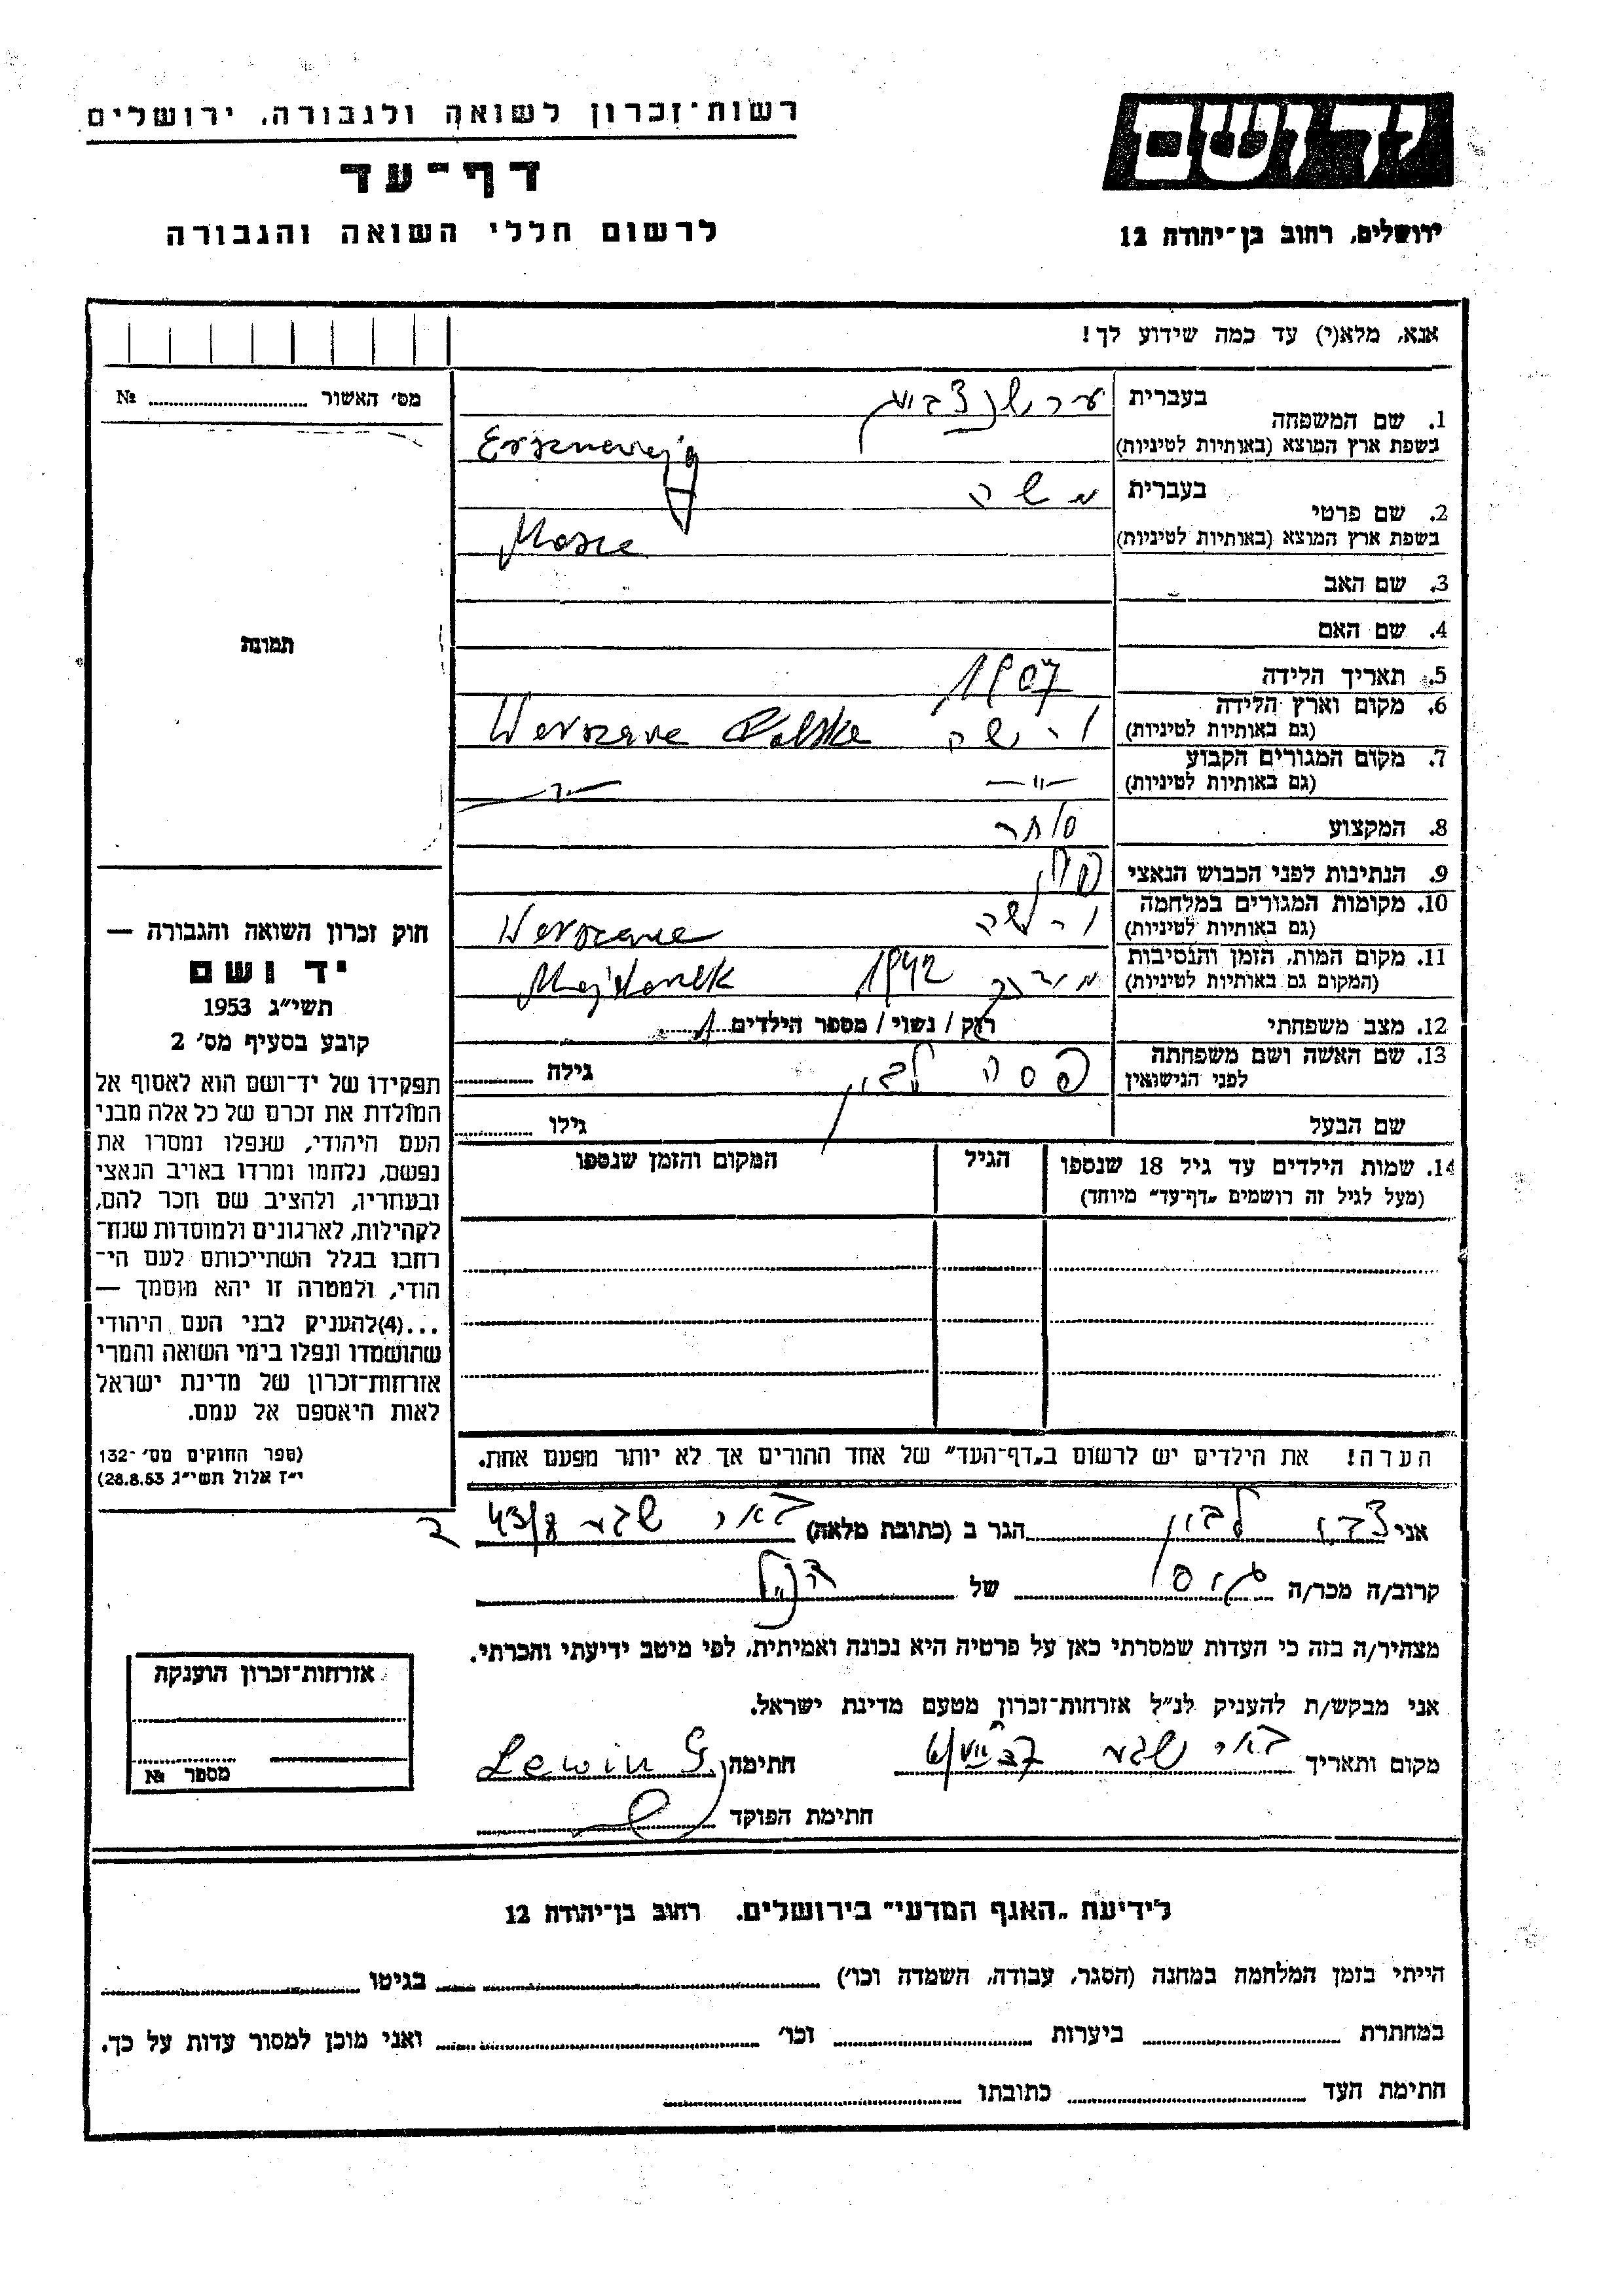 רשות־זכרון לשואה ולגבורה, ירושלים
דף־עד
לרשום חללי השואה והגבורה
יד ושם
ירושלים, רחוב בן־יהודה 12
אנא, מלא(י) עד כמה שידוע לך!
מס׳ האשור № 
1. שם המשפחה בעברית
בשפת ארץ המוצא (באותיות לטיניות)
2. שם פרטי בעברית משה
בשפת ארץ המוצא (באותיות לטיניות) Mosze
3. שם האב
4. שם האם
5. תאריך הלידה 1907
6. מקום וארץ הלידה
(גם באותיות לטיניות) ורשה Warszawa Polska
7. מקום המגורים הקבוע
(גם באותיות לטיניות) —״—
8. המקצוע סוחר
9. הנתינות לפני הכבוש הנאצי פולין
10. מקומות המגורים במלחמה
(גם באותיות לטיניות) ורשה Warszawa
11. מקום המות, הזמן והנסיבות
(המקום גם באותיות לטיניות) 1942 Majdanek
12. מצב משפחתי רוק / נשוי / מספר הילדים 1
13. שם האשה ושם משפחתה
לפני הנישואין פסה לבין גילה
שם הבעל גילו
14. שמות הילדים עד גיל 18 שנספו
(מעל לגיל זה רושמים „דף־עד״ מיוחד)
הגיל
המקום והזמן שנספו
הערה! את הילדים יש לרשום ב„דף־העד״ של אחד ההורים אך לא יותר מפעם אחת.
תמונה
חוק זכרון השואה והגבורה —
יד ושם
תשי״ג 1953
קובע בסעיף מס׳ 2
תפקידו של יד־ושם הוא לאסוף אל
המולדת את זכרם של כל אלה מבני
העם היהודי, שנפלו ומסרו את
נפשם, נלחמו ומרדו באויב הנאצי
ובעוזריו, ולהציב שם וזכר להם,
לקהילות, לארגונים ולמוסדות שנח־
רבו בגלל השתייכותם לעם הי־
הודי, ולמטרה זו יהא מוסמך —
...(4)להעניק לבני העם היהודי
שהושמדו ונפלו בימי השואה והמרי
אזרחות־זכרון של מדינת ישראל
לאות היאספם אל עמם.
(ספר החוקים מס׳ 132־
י״ז אלול תשי״ג 28.8.53)
אני לבין הגר ב (כתובת מלאה) באר שבע 43/8
קרוב/ה מכר/ה גיסו של הנ״ל
מצהיר/ה בזה כי העדות שמסרתי כאן על פרטיה היא נכונה ואמיתית, לפי מיטב ידיעתי והכרתי.
אני מבקש/ת להעניק לנ״ל אזרחות־זכרון מטעם מדינת ישראל.
מקום ותאריך באר שבע חתימה Lewin G.
חתימת הפוקד
אזרחות־זכרון הוענקה
מספר №
לידיעת „האגף המדעי״ בירושלים, רחוב בן־יהודה 12
הייתי בזמן המלחמה במחנה (הסגר, עבודה, השמדה וכו׳) בגיטו
במחתרת ביערות וכו׳ ואני מוכן למסור עדות על כך.
חתימת העד כתובתו